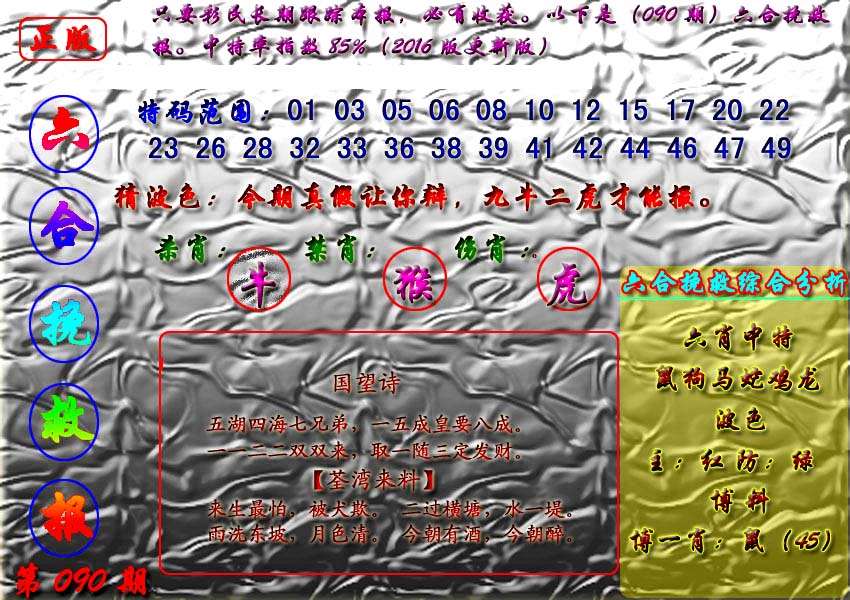 正版
只要彩民长期跟踪本报，必有收获。以下是（090期）六合挽救
报。中特率指数85%（2016版更新版）
六合挽救报
第090期
特码范围：01 03 05 06 08 10 12 15 17 20 22
23 26 28 32 33 36 38 39 41 42 44 46 47 49
猜波色：今期真假让你辩，九牛二虎才能报。
杀肖：牛 禁肖：猴 伤肖：。虎
国望诗
五湖四海七兄弟，一五成皇要八成。
一一二二双双来，取一随三定发财。
【荃湾来料】
来生最怕，被犬欺。 二过横塘，水一堤。
雨洗东坡，月色清。 今朝有酒，今朝醉。
六合挽救综合分析
六肖中特
鼠狗马蛇鸡龙
波色
主：红防：绿
博料
博一肖：鼠（45）